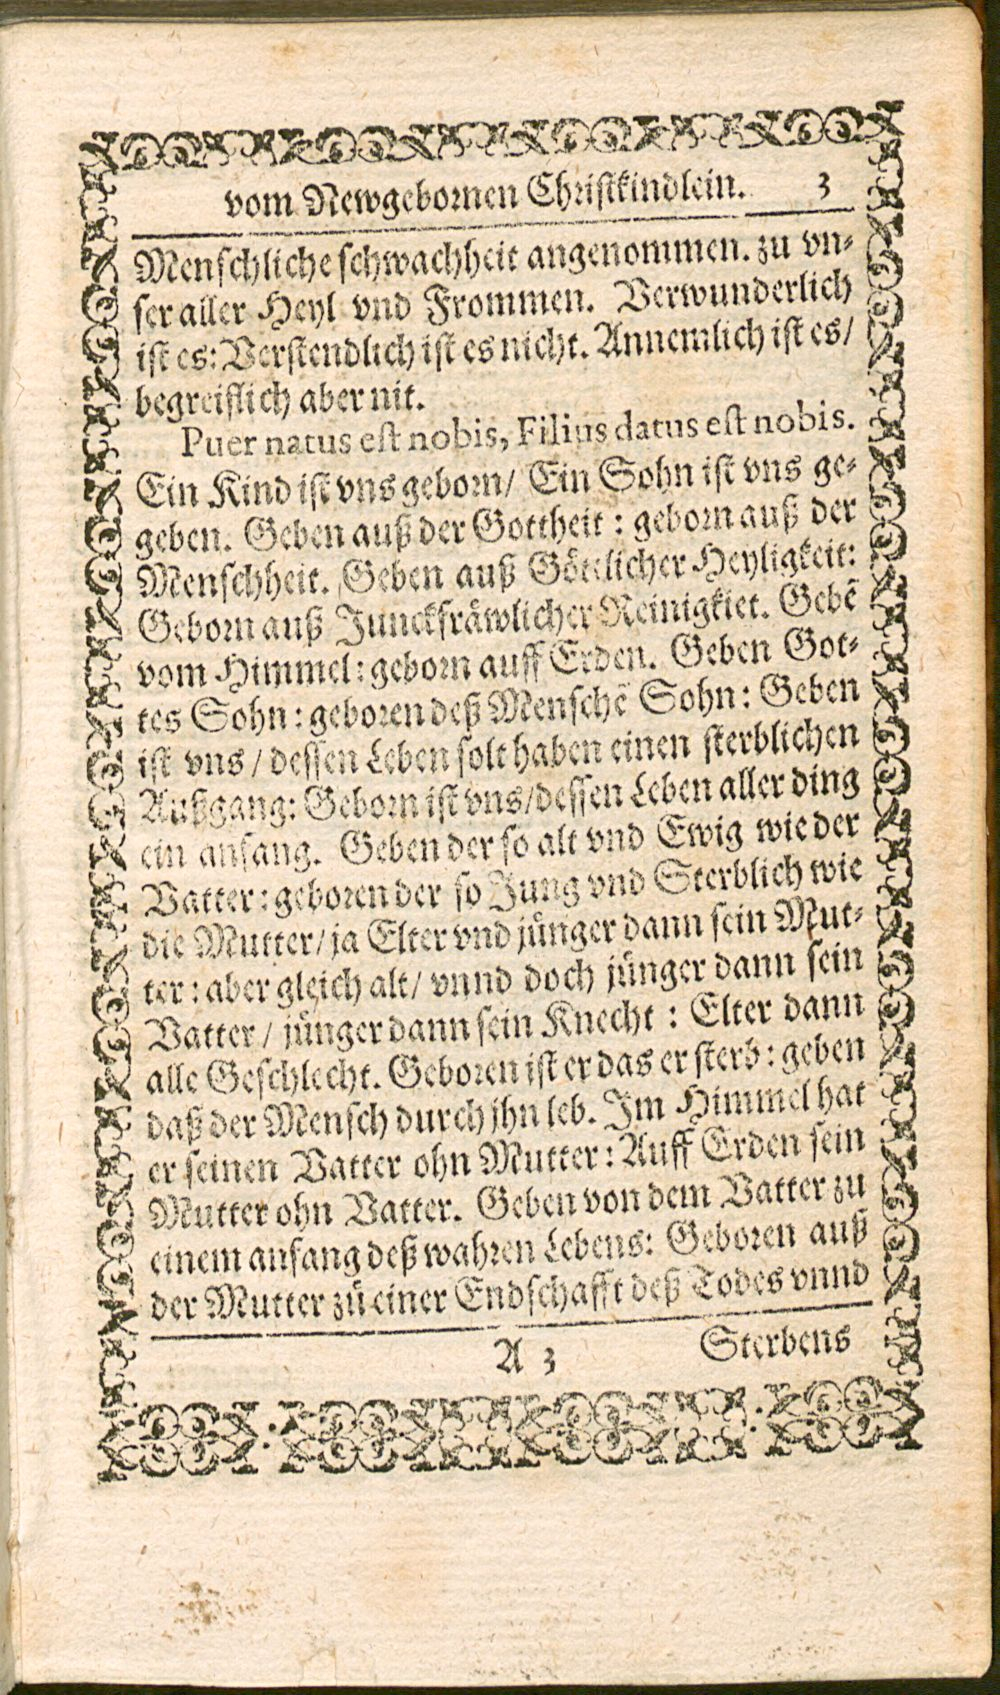 vom Newgebornen Christkindlein. 3
Menschliche schwachheit angenommen. zu vn-
ser aller Heyl vnd Frommen. Verwunderlich
ist es: Verstendlich ist es nicht. Annemlich ist es/
begreiflich aber nit.
Puer natus est nobis, Filius datus est nobis.
Ein Kind ist vns geborn/ Ein Sohn ist vns ge-
geben. Geben auß der Gottheit: geborn auß der
Menschheit. Geben auß Göttlicher Heyligkeit:
Geborn auß Junckfräwlicher Reinigkiet. Gebē
vom Himmel: geborn auff Erden. Geben Got-
tes Sohn: geboren deß Menschē Sohn: Geben
ist vns / dessen Leben solt haben einen sterblichen
Außgang: Geborn ist vns/dessen Leben aller ding
ein anfang. Geben der so alt vnd Ewig wie der
Vatter: geboren der so Jung vnd Sterblich wie
die Mutter/ ja Elter vnd jünger dann sein Mut-
ter: aber gleich alt/ vnnd doch jünger dann sein
Vatter/ jünger dann sein Knecht: Elter dann
alle Geschlecht. Geboren ist er das er sterb: geben
daß der Mensch durch jhn leb. Im Himmel hat
er seinen Vatter ohn Mutter: Auff Erden sein
Mutter ohn Vatter. Geben von dem Vatter zu
einem anfang deß wahren Lebens: Geboren auß
der Mutter zu einer Endschafft deß Todes vnnd
A 3 Sterbens